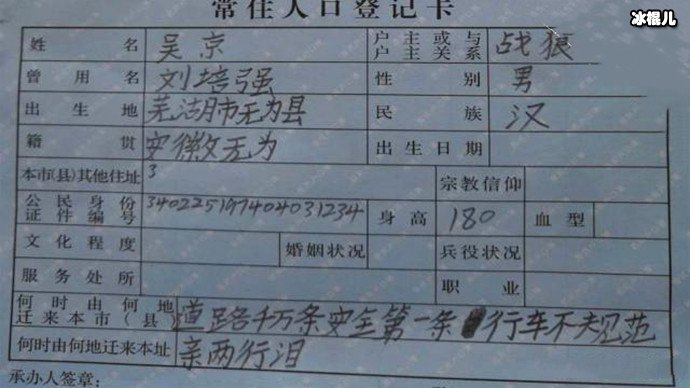 冰棍儿
常住人口登记卡
姓名 吴京 户主或与户主关系 战狼
曾用名 刘培强 性别 男
出生地 芜湖市无为县 民族 汉
籍贯 安徽无为 出生日期
本市(县)其他住址 3 宗教信仰
公民身份证件编号 340225197404031234 身高 180 血型
文化程度 婚姻状况 兵役状况
服务处所 职业
何时由何地迁来本市(县) 道路千万条安全第一条 行车不规范
何时由何地迁来本址 亲两行泪
承办人签章: